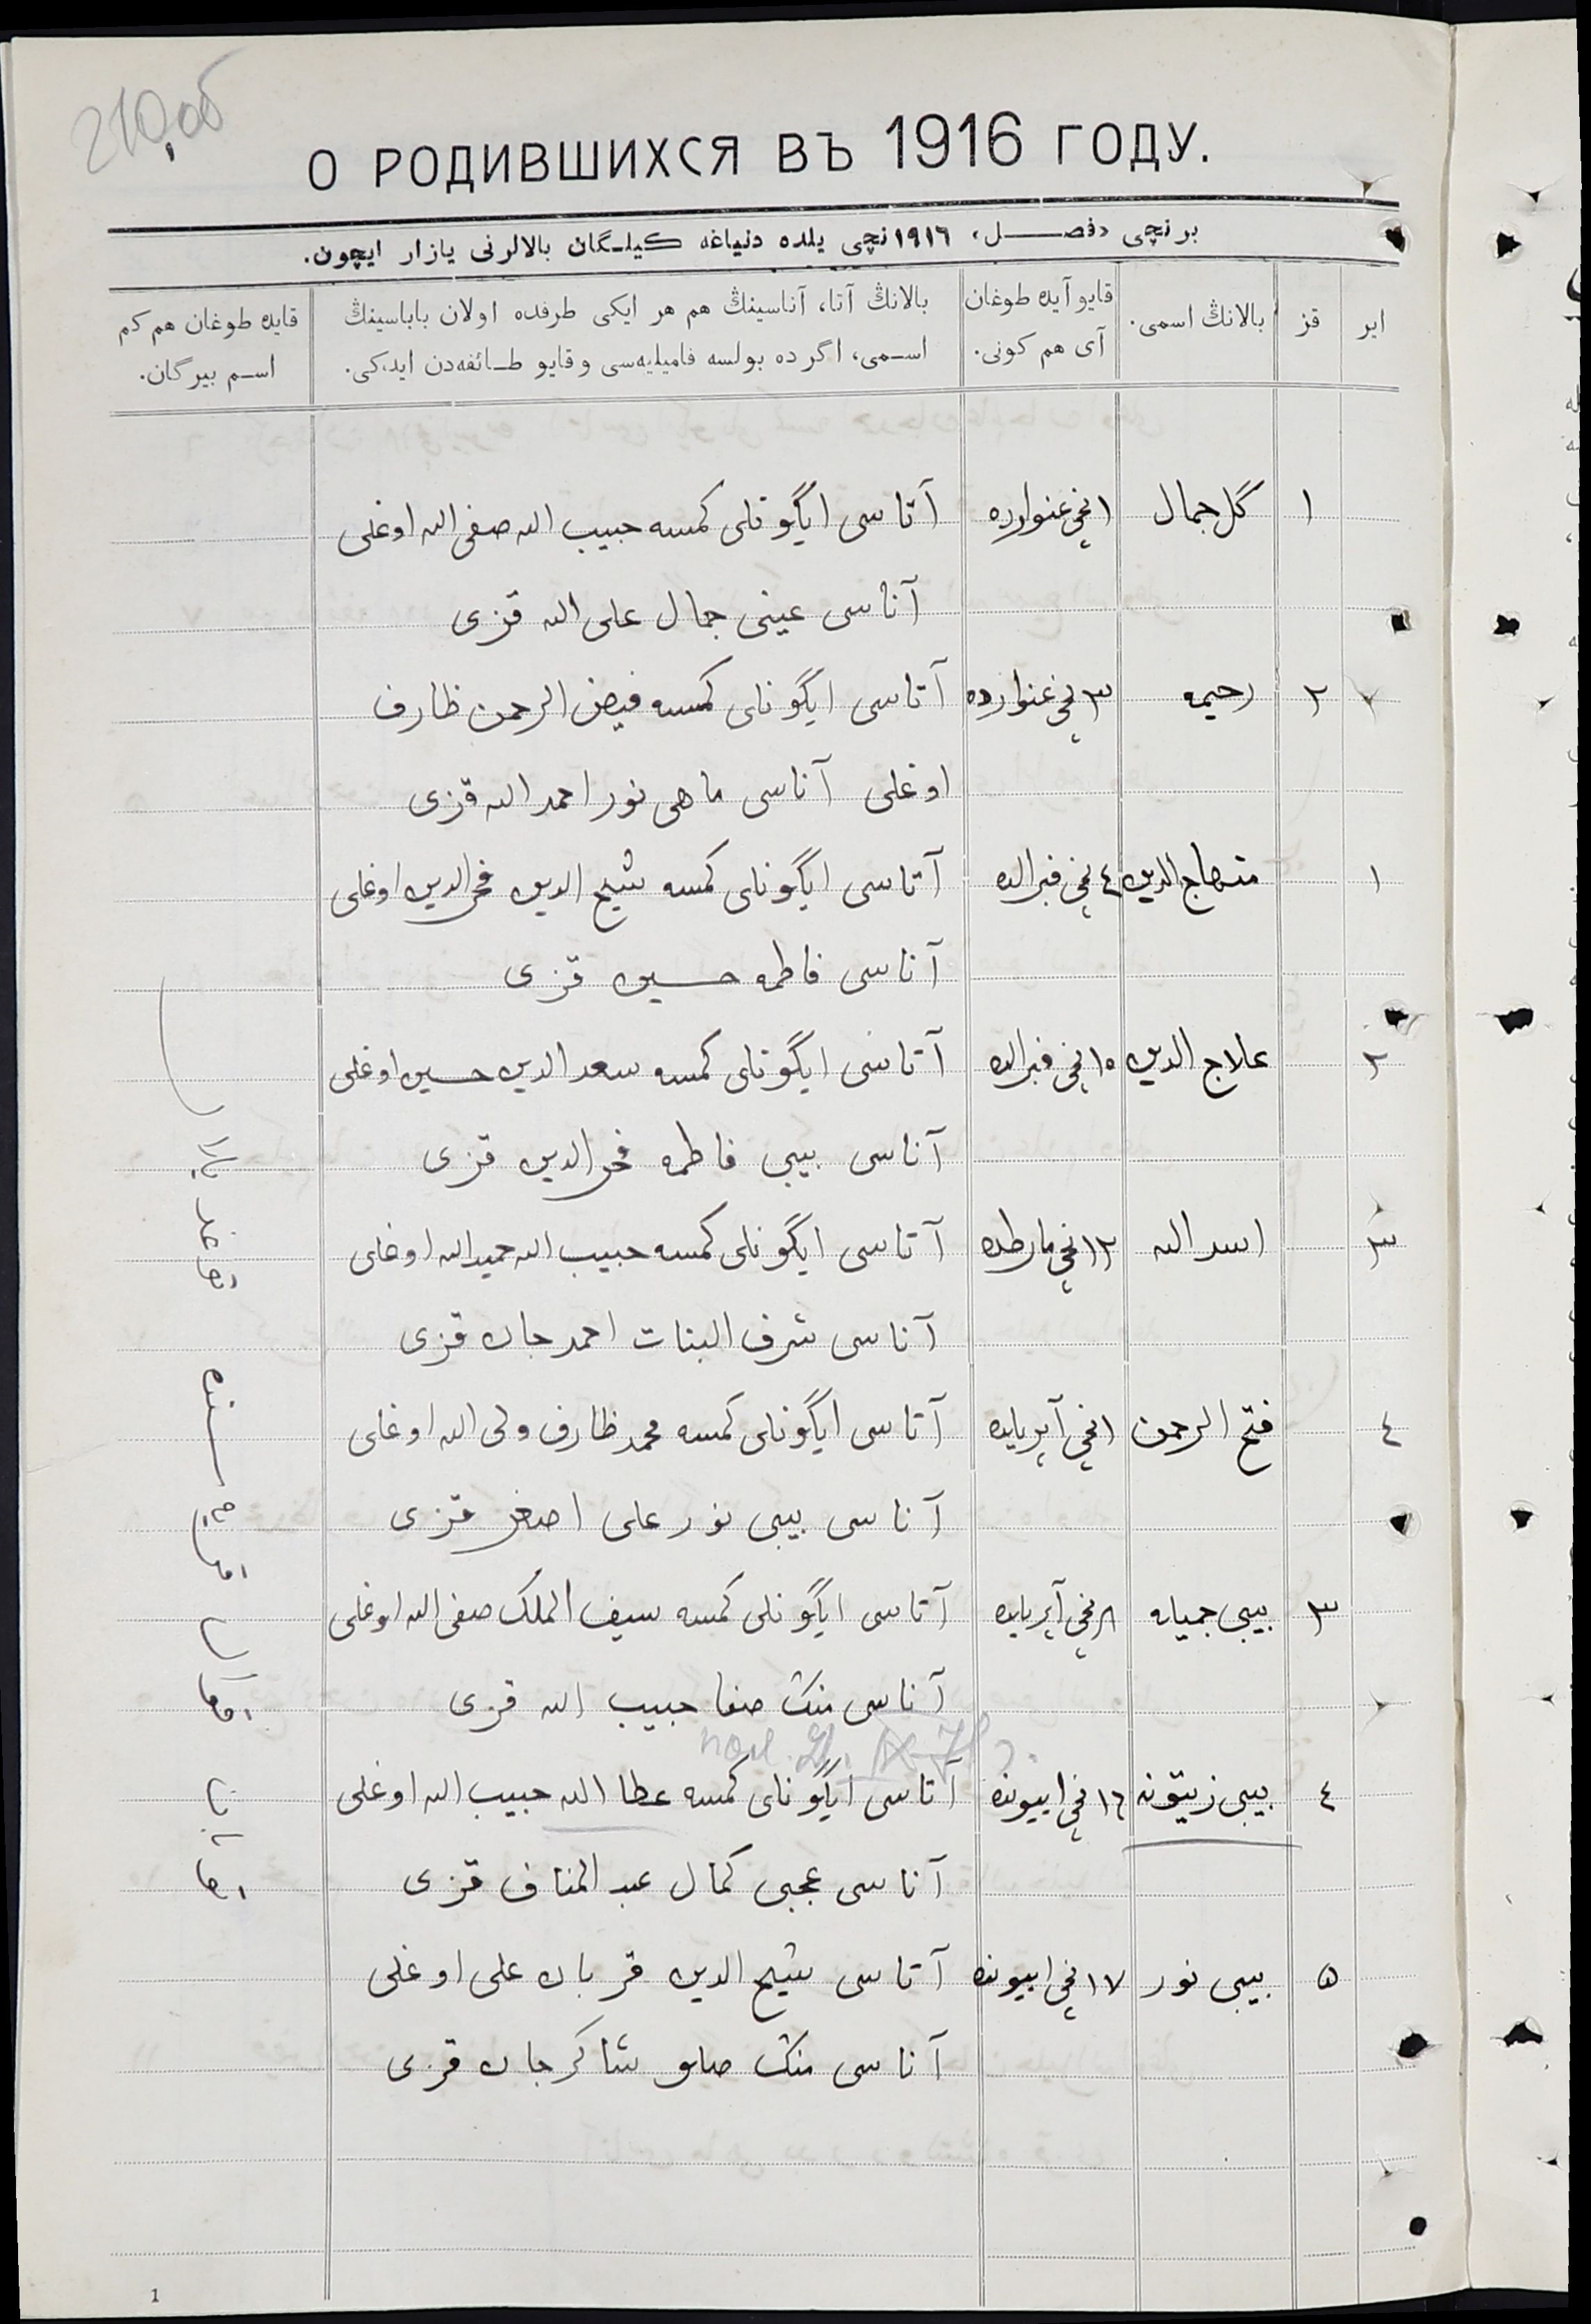 210,об
О РОДИВШИХСЯ ВЪ 1916 ГОДУ.
برنچی «فصل» ١٩١٦ نچی یلده دنیاغه كیلگان بالالرنی یازار ایچون.
ایر
قز
بالانڭ اسمی.
قایو آیده طوغان
آی هم كونی.
بالانڭ آتا، آناسینڭ هم هر ایكی طرفده اولان باباسینڭ
اسمی، اگر ده بولسه فامیلیه‌سی و قایو طائفه‌دن ایدكی.
قایده طوغان هم كم
اسم بیرگان.
١ گل جمال ١ نچی غنوارده آتاسی ایگونلی كمسه حبیب الله صفی الله اوغلی
آناسی عینی جمال علی الله قزی
٢ رحیمه ٣ نچی غنوارده آتاسی ایگونلی كمسه فیض الرحمن ظارف
اوغلی آناسی ماهی نور احمد الله قزی
١ منهاج الدین ٤ نچی فبرالده آتاسی ایگونلی كمسه شیخ الدین فخرالدین اوغلی
آناسی فاطمه حسین قزی
٢ علاج الدین ١٥ نچی فبرالده آتاسی ایگونلی كمسه سعد الدین حسین اوغلی
آناسی بیبی فاطمه فخرالدین قزی
٣ اسد الله ١٢ نچی مارطده آتاسی ایگونلی كمسه حبیب الله حمیدالله اوغلی
آناسی شرف البنات احمد جان قزی
٤ فتح الرحمن ١ نچی آپریلده آتاسی ایگونلی كمسه محمد ظارف ولی الله اوغلی
آناسی بیبی نور علی اصغر قزی
٣ بیبی جمیله ٨ نچی آپریلده آتاسی ایگونلی كمسه سیف الملك صفی الله اوغلی
آناسی منك صفا حبیب الله قزی
٤ بیبی زیتونه ١٦ نچی اییونده آتاسی ایگونلی كمسه عطا الله حبیب الله اوغلی
آناسی عجبی كمال عبد المناف قزی
٥ بیبی نور ١٧ نچی اییونده آتاسی شیخ الدین قربان علی اوغلی
آناسی منك صلو شاكرجان قزی
1